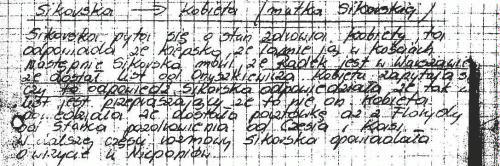 Sikorska → Kobieta (matka Sikorskiej)
Sikorska pyta się o stan zdrowia kobiety, ta
odpowiada że kiepsko, że łamie ją w kościach
Następnie Sikorska mówi, że Radek jest w Warszawie
że dostał list od Onyszkiewicza Kobieta zapytała się
czy to odpowiedź Sikorska odpowiedziała że tak
list jest przepraszający, że to nie on Kobieta
powiedziała że dostała pocztówkę aż z Florydy
od Stańka pozdrowienia od Czesia i Kasi
W dalszej części rozmowy Sikorska opowiadała
o wizycie u Nieponiów